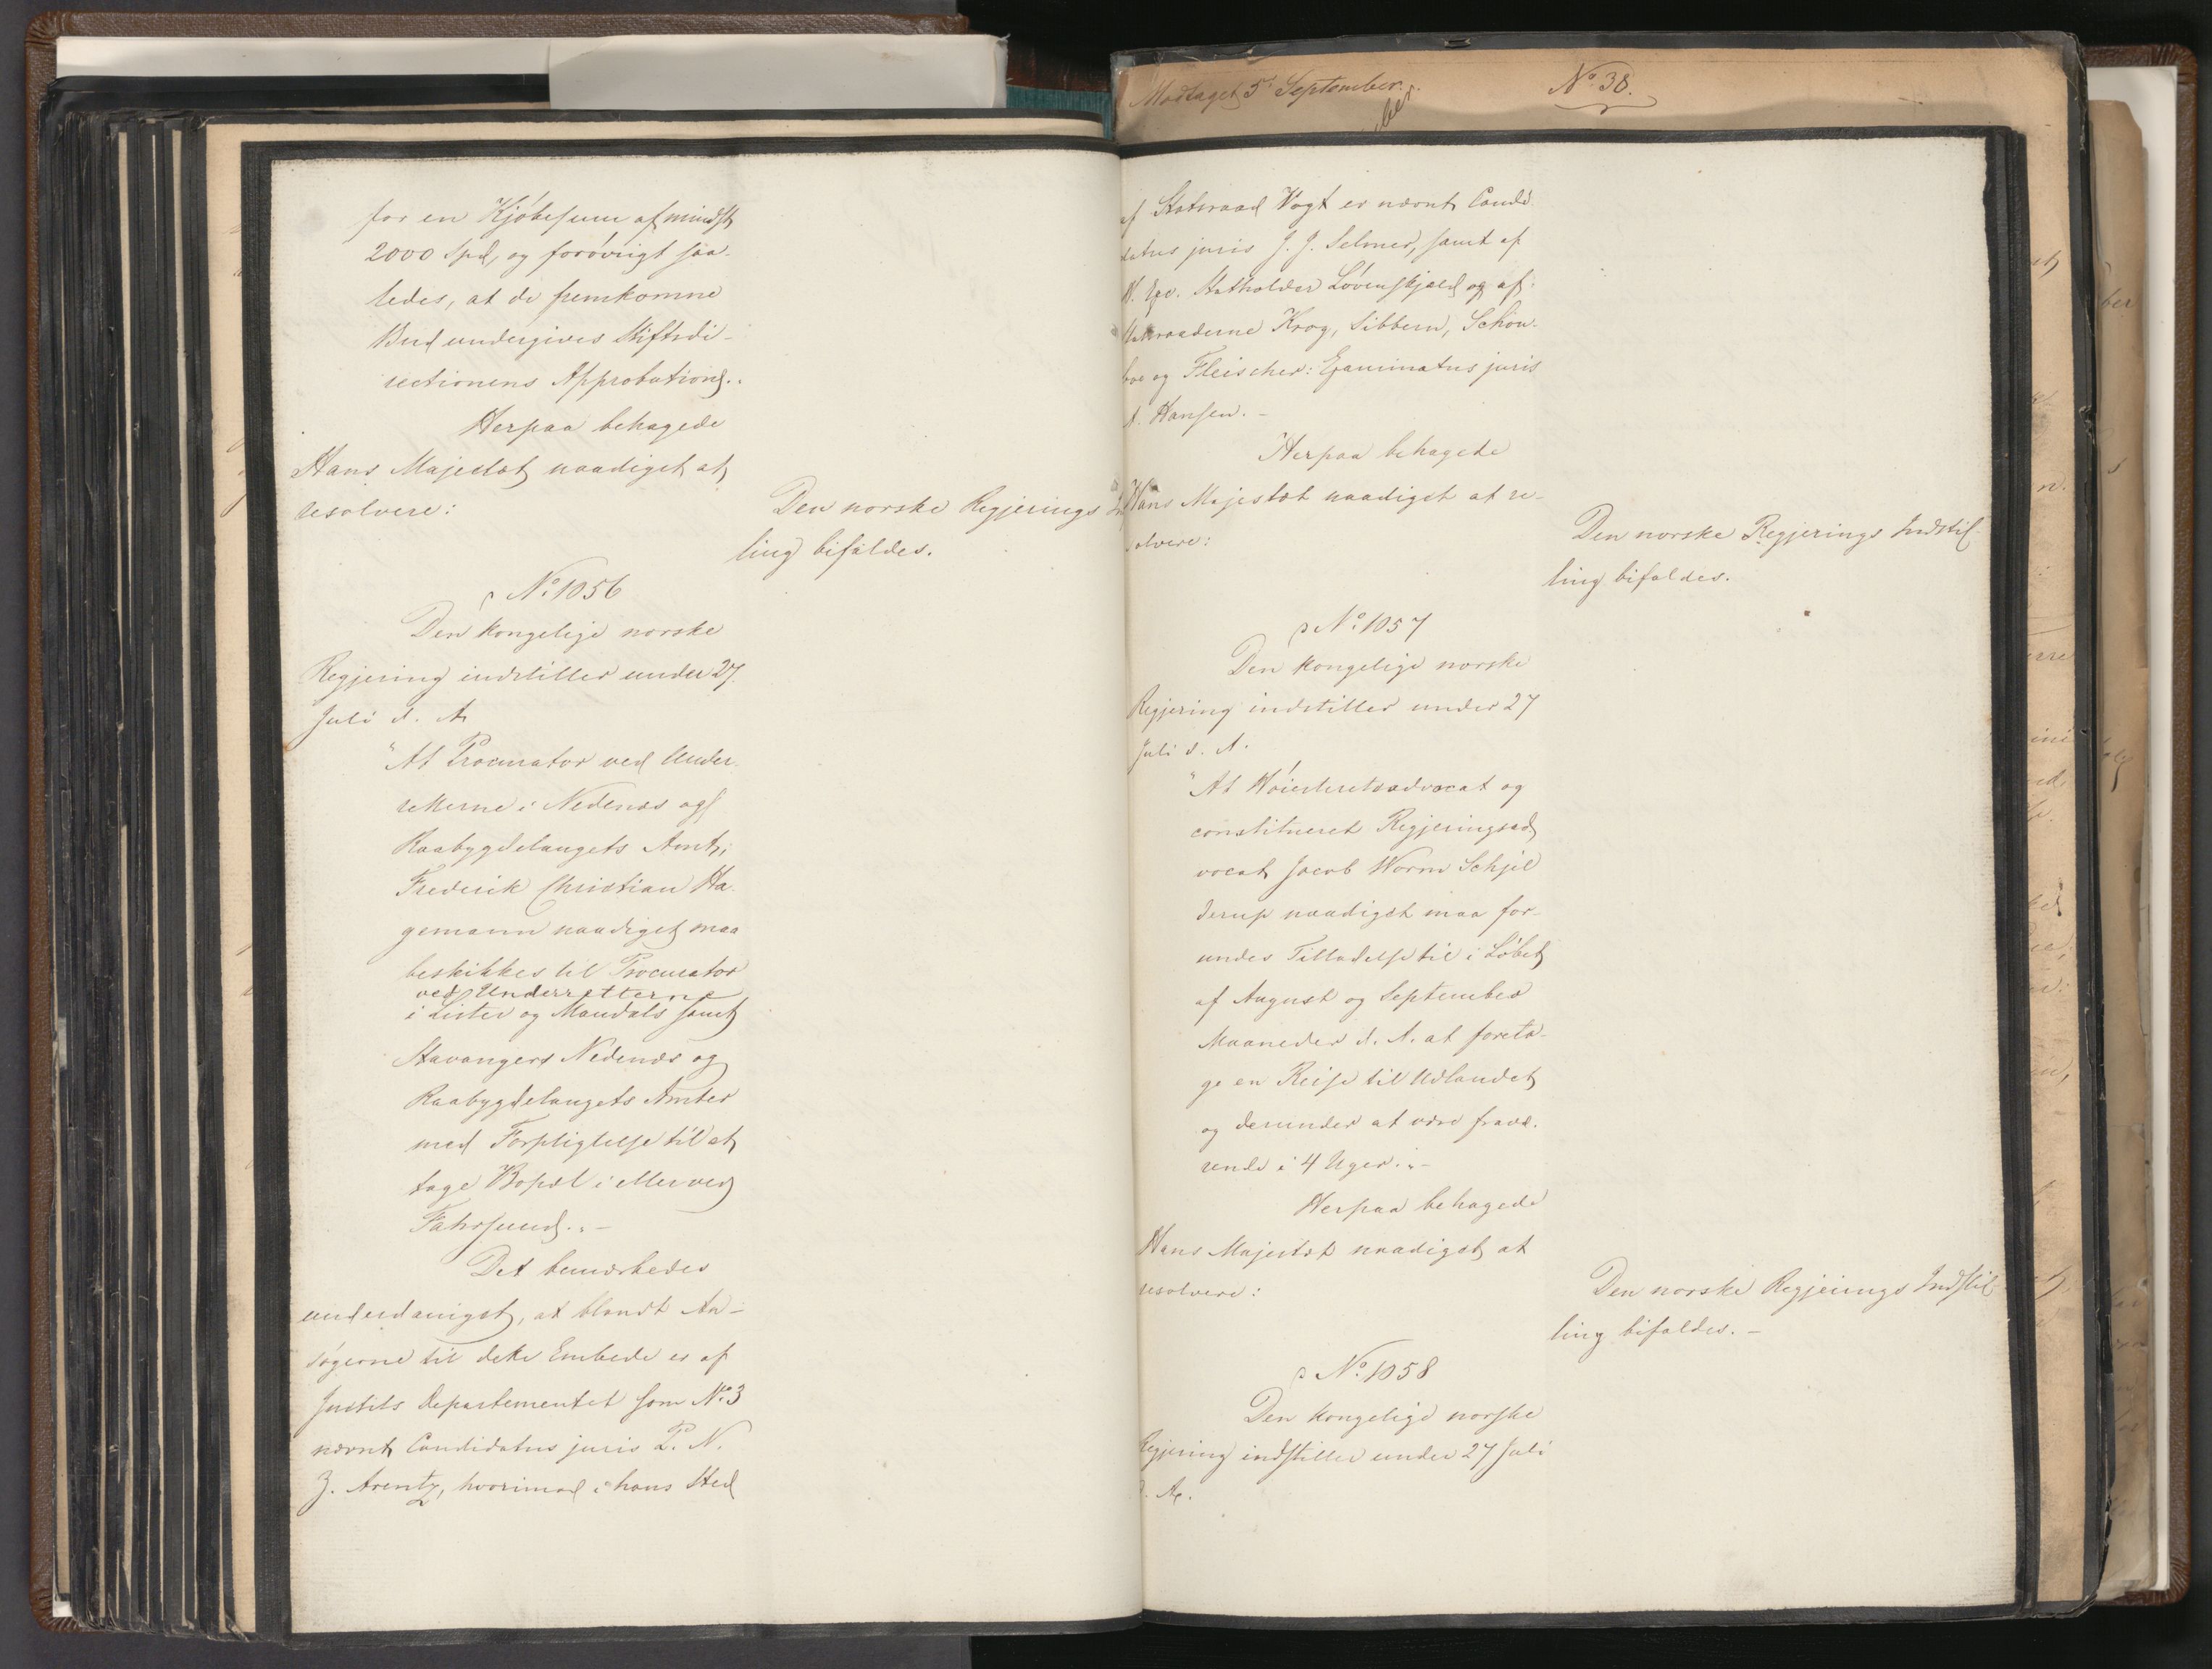 for en Kjøbesum af mindst
2000 Spd, og forøvrigt saa-
ledes, at de fremkomne
Bud undergives Stiftsdi-
rectionens Approbation".
Herpaa behagede
Hans Majestæt naadigst at
resolvere:
Den norske Regjerings In
ling bifaldes.
No 1056
Den kongelige norske
Regjering indstiller under 27.
Juli d. A.
"At Procurator ved Under-
retterne i Nedenæs og
Raabygdelaugets Amt,
Frederik Christian Ha-
gemann naadigst maa
beskikkes til Procurator
ved Underretterne
i Lister og Mandals samt
Stavangers Nedenæs og
Raabygdelaugets Amter
med Forpligtelse til at
tage Bopæl i eller ved
Fahrsund". -
Det bemærkedes
underdanigst, at blandt An-
søgerne til dette Embede er af
Justits Departementet som No. 3
nævnt Candidatus juris P. N.
Z. Arentz, hvorimod i hans Sted
Modtaget 5. September.
ber
No. 38.
af Statsraad Vogt er nævnt Candi-
datus juris J. J. Selmer, samt af
H. Exc. Statholder Løvenskjold og af
Statsraaderne Krog, Sibbern, Schou-
boe og Fleischer: Examinatus juris
A. Hansen. -
Herpaa behagede
Hans Majestæt naadigst at re-
solvere:
Den norske Regjerings Indstil-
ling bifaldes.
No. 1057
Den kongelige norske
Regjering indstiller under 27
Juli d. A.
"At Høiesteretsadvocat og
constitueret Regjeringsad-
vocat Jacob Worm Schjel
derup naadigst maa for-
undes Tilladelse til i Løbet
af August og September
Maaneder d. A. at foreta-
ge en Reise til Udlandet
og derunder at være fravæ-
rende i 4 Uger". -
Herpaa behagede
Hans Majestæt naadigst at
resolvere:
Den norske Regjerings Indstil-
ling bifaldes. -
No. 1058
Den kongelige norske
Regjering indstiller under 27 Juli
d. A.